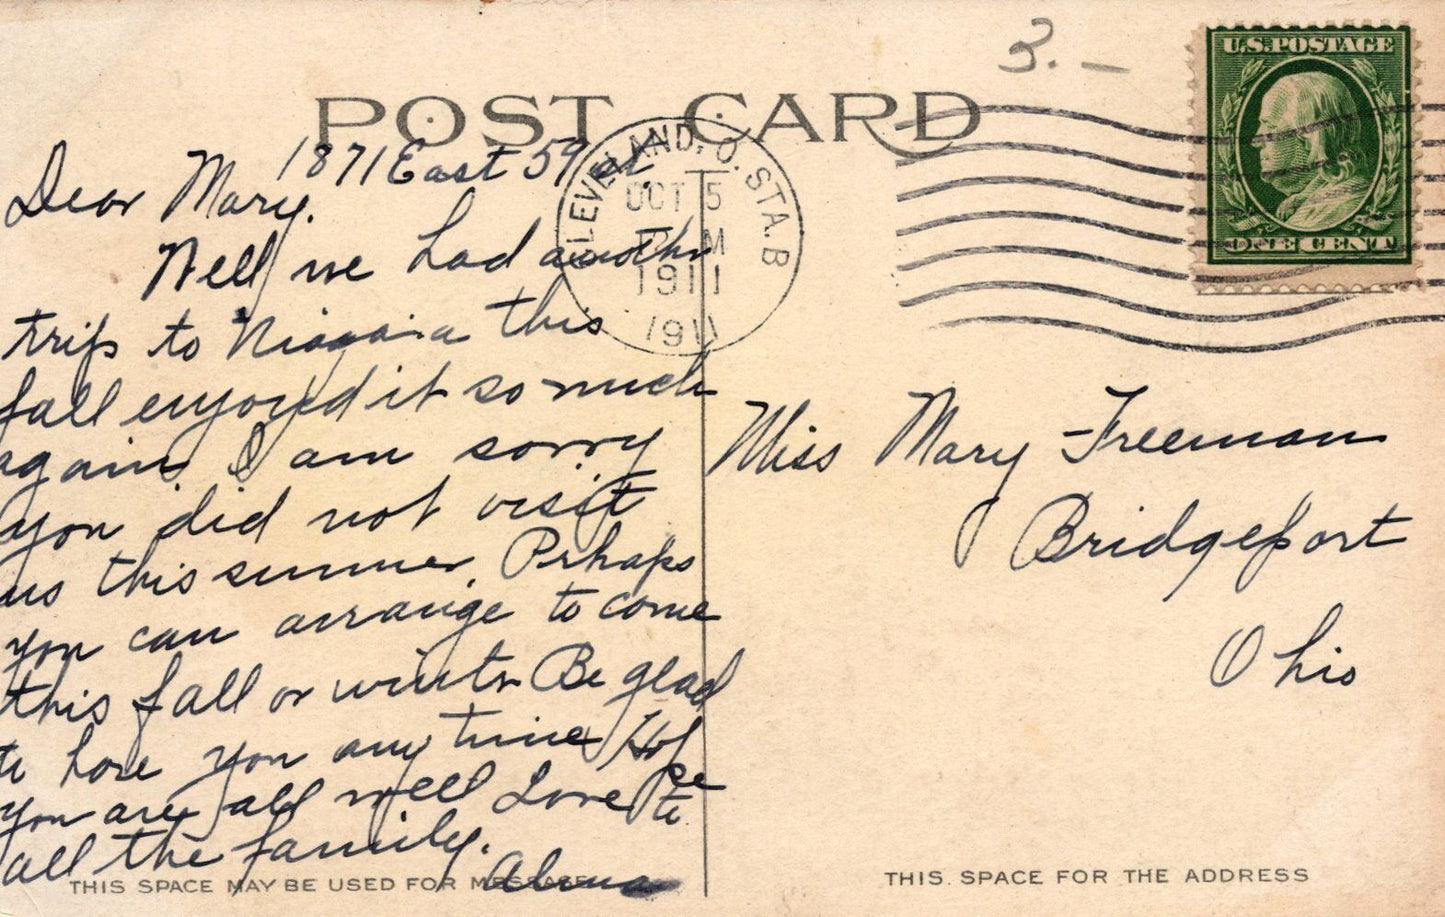 3.—
U.S. POSTAGE
ONE CENT
POST CARD
CLEVELAND, O. STA. B
OCT 5
M
1911
1911
1871 East 59 st.
Dear Mary.
Well we had another
trip to Niagara this
fall enjoyed it so much
again. I am sorry
you did not visit
us this summer. Prhaps
you can arrange to come
this fall or winter Be glad
to have you any time Hope
you are all well Love to
all the family.
THIS SPACE MAY BE USED FOR MESSAGE
Miss Mary Freeman
Bridgeport
Ohio
THIS SPACE FOR THE ADDRESS